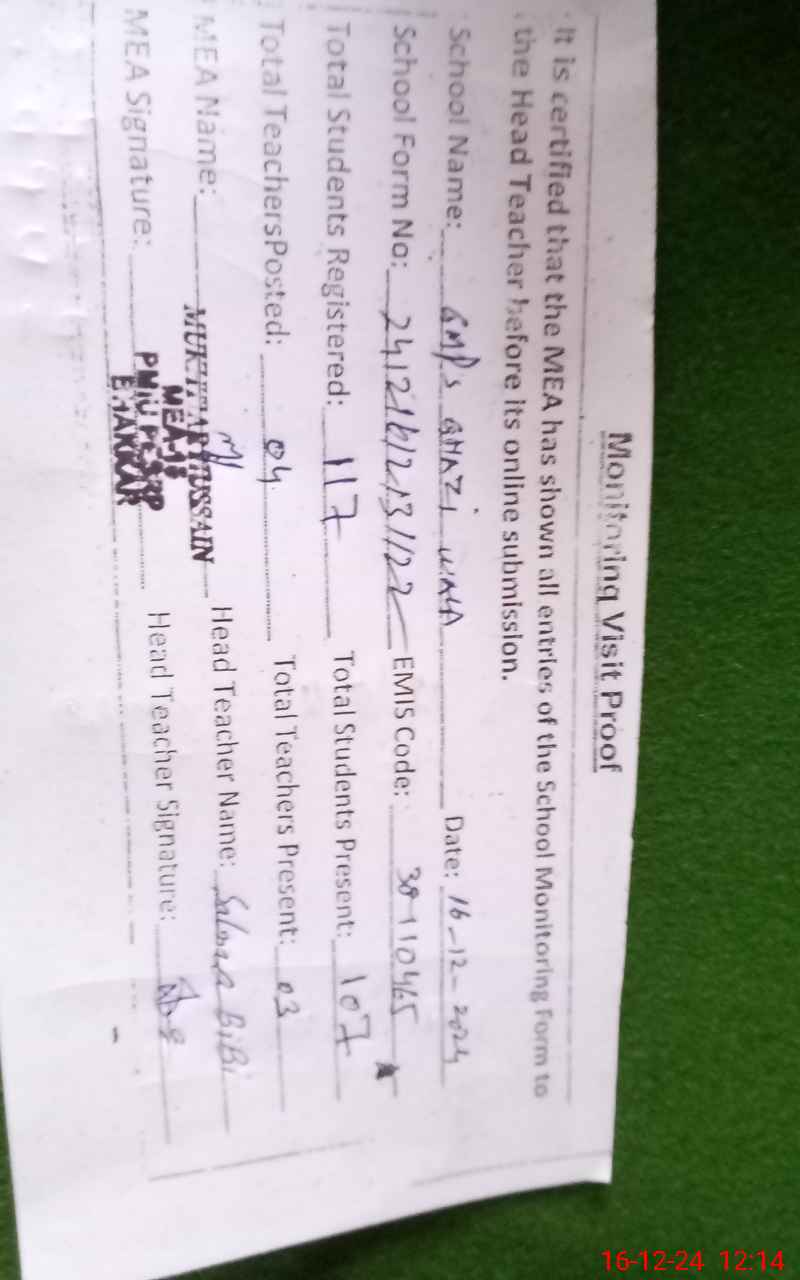 Monitoring Visit Proof
It is certified that the MEA has shown all entries of the School Monitoring Form to
the Head Teacher before its online submission.
School Name: GMPS GHAZI WALA Date: 16-12-2024
School Form No: EMIS Code:
Total Students Registered: 117 Total Students Present: 107
Total TeachersPosted: 04 Total Teachers Present: 03
MEA Name: MUKHTIAR HUSSAIN Head Teacher Name: BiBi
MEA-18
MEA Signature: Head Teacher Signature:
BHAKKAR
16-12-24 12:14